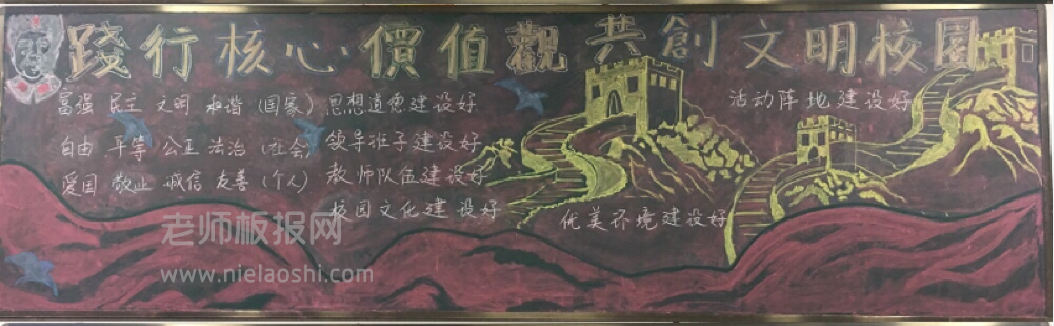 踐行核心價值觀 共創文明校園
富强 民主 文明 和谐（国家）思想道德建设好
自由 平等 公正 法治（社会）领导班子建设好
爱国 敬业 诚信 友善（个人）教师队伍建设好
校园文化建设好
优美环境建设好
活动阵地建设好
老师板报网
www.nielaoshi.com